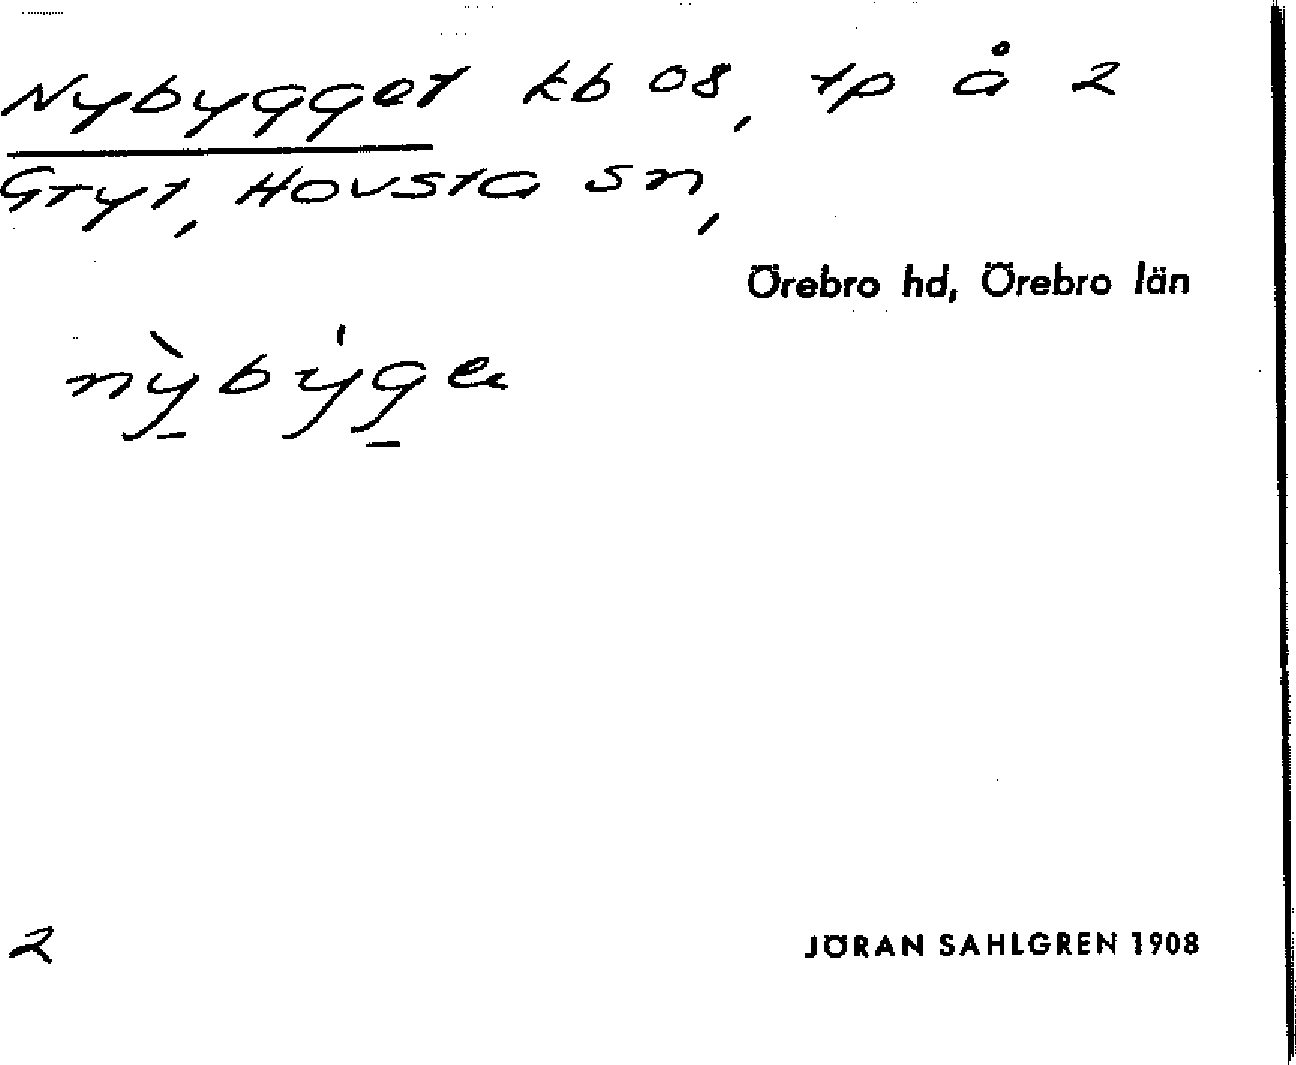 Nybygget kb 08, tp å 2
Gryt, Hovsta sn,
Örebro hd, Örebro län
nỳbýge
2
JÖRAN SAHLGREN 1908